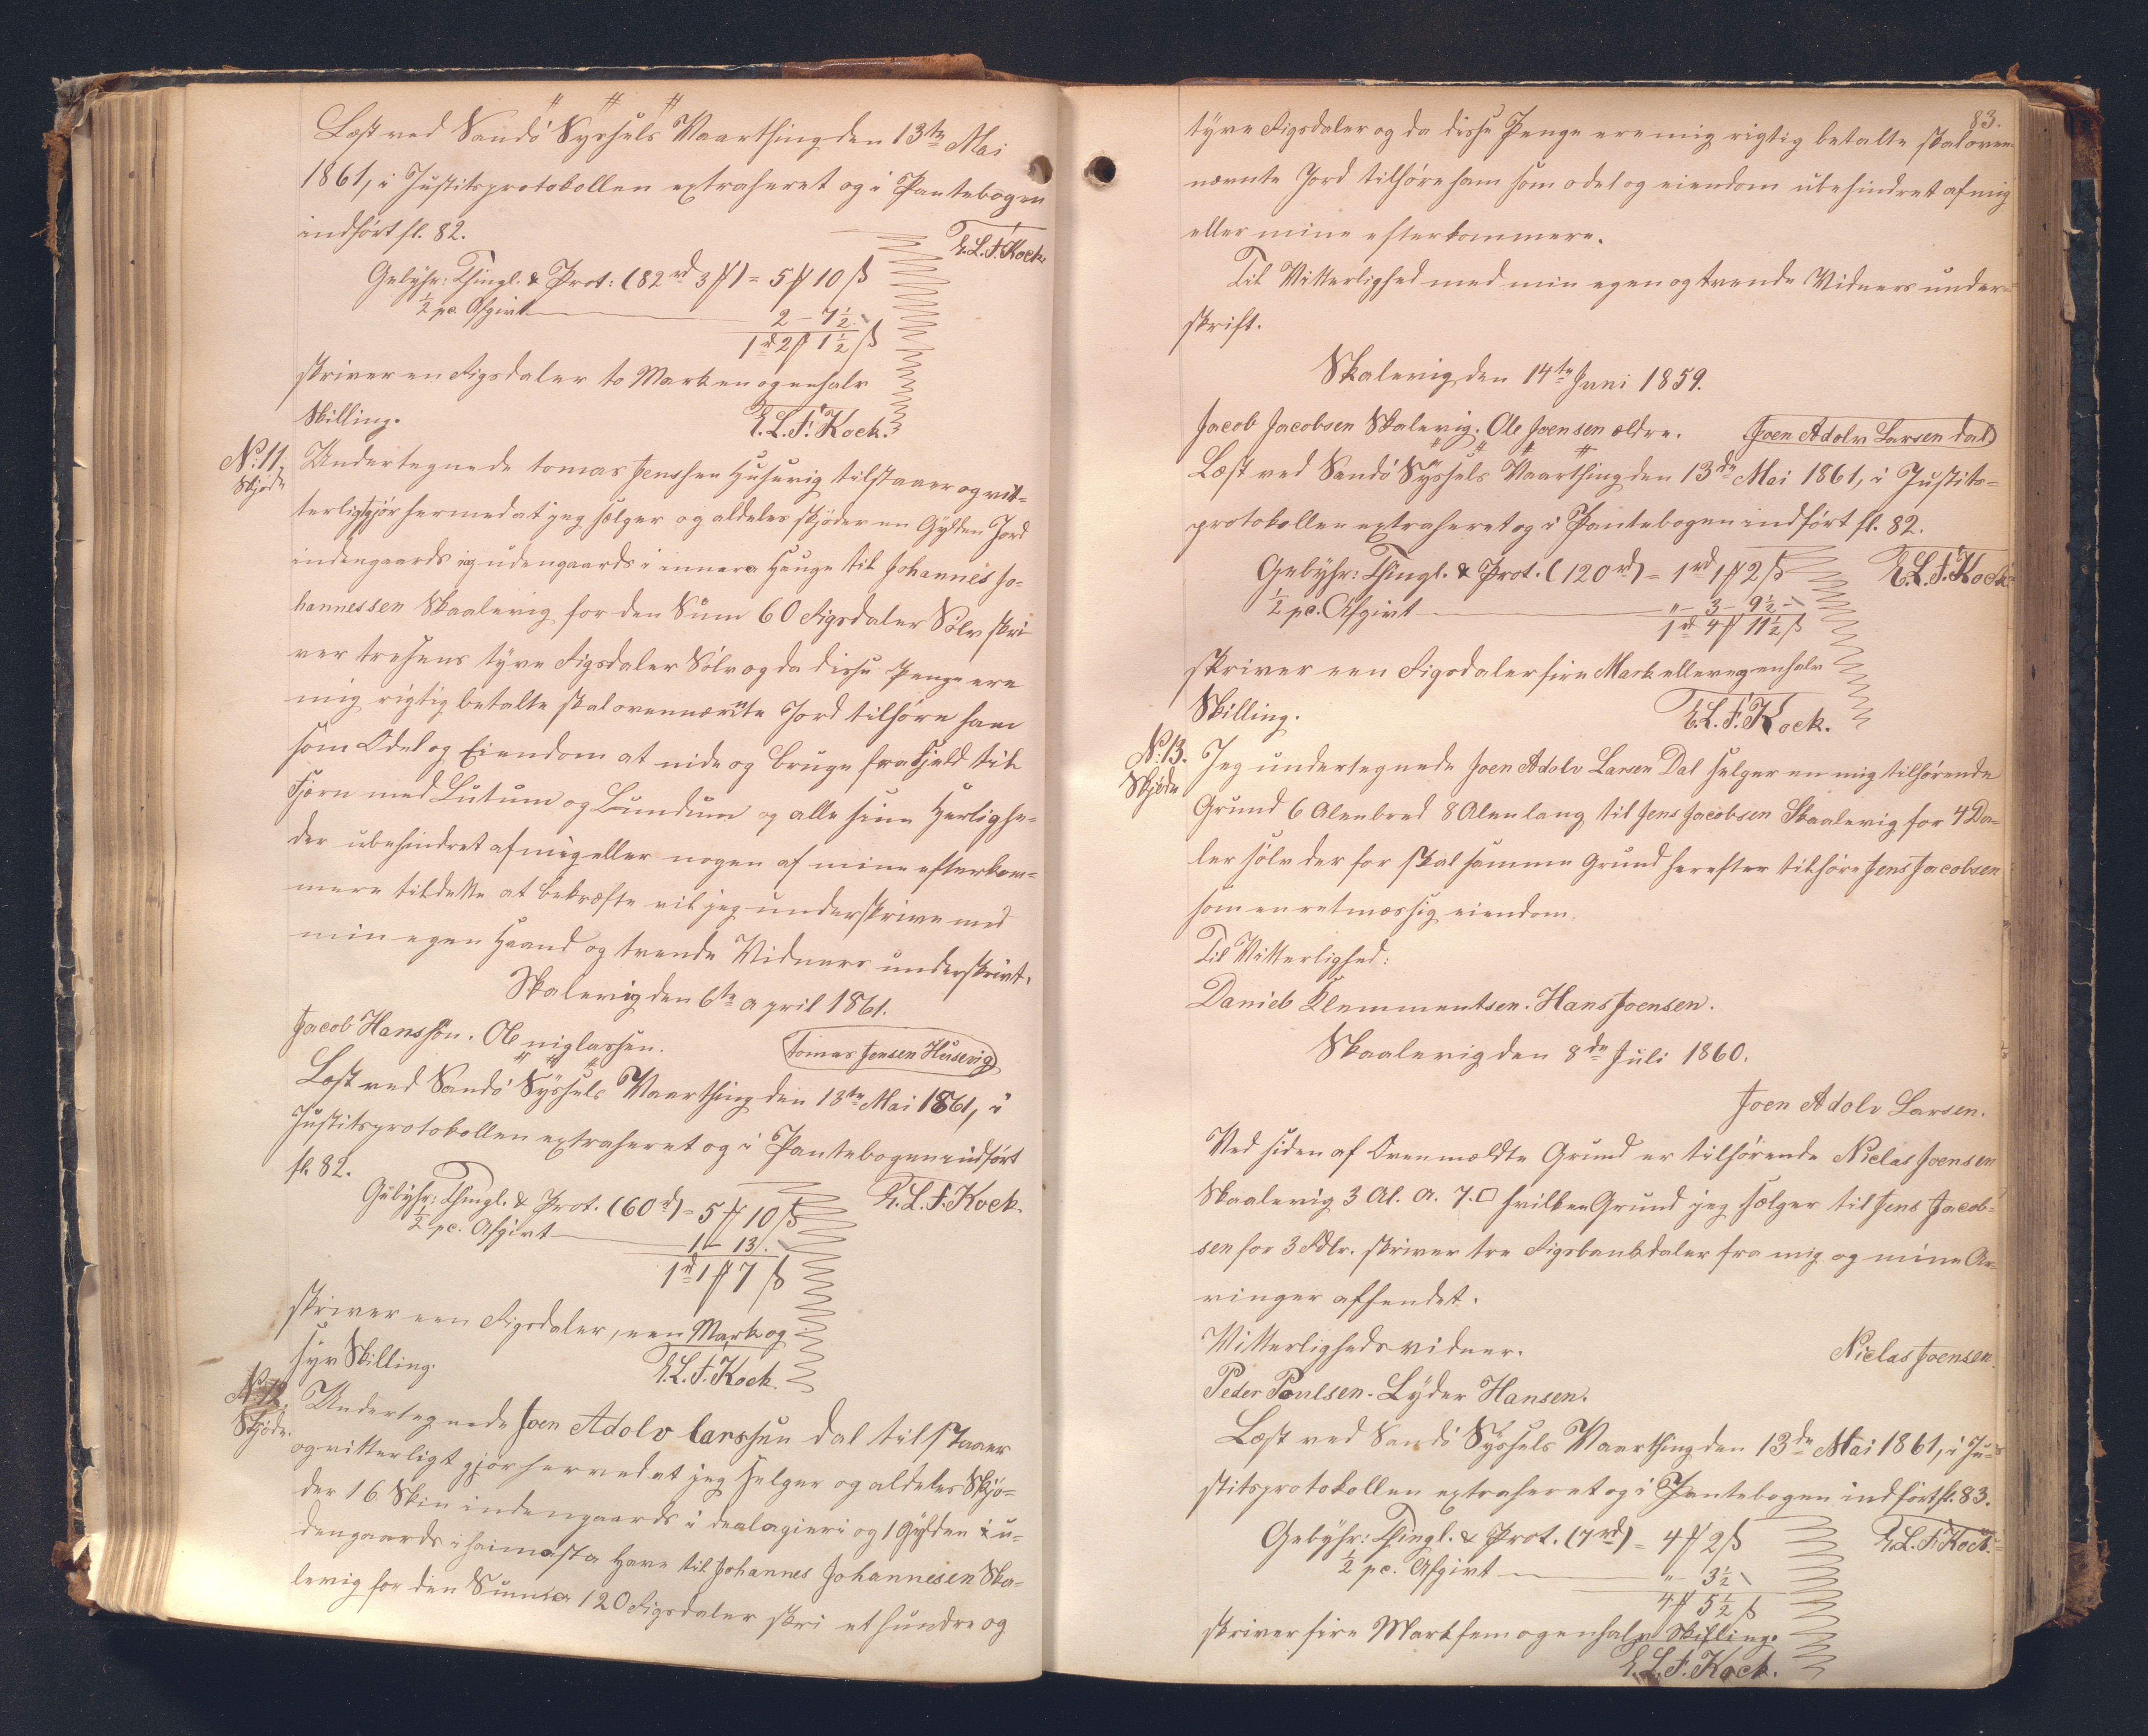 Læst ved Sandö Sÿssels Vaarthing den 13te Mai
1861, i Justitsprotokollen extraheret og i Pantebogen
indført fl. 82.
E.L.F. Kock.
Gebyhr: Thingl. & Prot: (82 rd 3 ₰) = 5 ₰ 10 ß
½ pc. Afgivt 2 - 7½ -
1 rd 2 ₰ 1½ ß
skriver en Rigsdaler to Mark en og en halv
Skilling.
E.L.F. Kock.
No. 11.
Skjøde
Undertegnede tomas Jenssen Husevig tilstaaer og vit-
terligtgjør hermed at jeg sælger og aldeles skjøder en Gylden Jord
indengaards og udengaards i innara Hauge til Johannes Jo-
hannessen Skaalevig for den Sum 60 Rigsdaler Sölv skri
ver tresens tyve Rigsdaler Sölv og da disse Penge ere
mig rigtig betalte skal ovennævnte Jord tilhöre ham
som Odel og Eiendom at nide og bruge fra Fjeld til
Fjørn med Lutum og Lundum og alle sine Herlighe-
der ubehindret af mig eller nogen af mine efterkom-
mere til dette at bekræfte vil jeg underskrive med
min egen Haand og trende Vidners underskrivt.
Skalevig den 6te april 1861.
Jacob Hanssön. Ole niglassen.
Tomas Jensen Husevig
Læst ved Sandö Sÿssels Vaarthing den 13te Mai 1861, i
Justitsprotokollen extraheret og i Pantebogen indført
fl. 82.
E.L.F. Kock.
Gebÿhr: Thingl. & Prot. (60 rd) = 5 ₰ 10 ß
½ pc. Afgivt 1 - 13. -
1 rd 1 ₰ 7 ß
skriver een Rigsdaler, een Mark og
syv Skilling.
E.L.F. Kock.
No. 12.
Skjøde.
Undertegnede Joen Adolv larssen dal tilstaaer
og vitterligt gjør herved at jeg selger og aldeles Skjø-
der 16 Skin indengaards i dealagieri og 1 Gylden i u-
dengaards i haimasta Have til Johannes Johannesen Ska-
levig for den Summa 120 Rigsdaler skri et hundre og
83.
tyve Rigsdaler og da disse Penge ere mig rigtig betalte skal oven-
nævnte Jord tilhöre ham som odel og eiendom ubehindret af mig
eller mine efterkommere.
Til Vitterlighed med min egen og trende Vidners under-
skrift.
Skalevig den 14te Juni 1859.
Jacob Jacobsen Skalevig. Ole Joensen ældre.
Joen Adolv Larsen dal
Læst ved Sandö Sÿssels Vaarthing den 13de Mai 1861, i Justits-
protokollen extraheret og i Pantebogen indført fl. 82.
E.L.F. Kock
Gebyhr: Thingl. & Prot. (120 rd) = 1 rd 1 ₰ 2 ß
½ pc. Afgivt " - 3 - 9½ -
1 rd 4 ₰ 11½ ß
skriver een Rigsdaler fire Mark elleve og en halv
Skilling.
E.L.F. Kock.
No. 13.
Skjøde
Jeg undertegnede Joen Adolv Larsen Dal selger en mig tilhörende
Grund 6 Alen bred 8 Alen lang til Jens Jacobsen Skaalevig for 4 Da-
ler sölv der for skal samme Grund herefter tilhöre Jens Jacobsen
som en retmæssig eiendom.
Til Vitterlighed:
Daniel Klemmentsen. Hans Joensen.
Skaalevig den 8de Juli 1860.
Joen Adolv Larsen.
Ved siden af Ovenmældte Grund er tilhørende Niclas Joensen
Skaalevig 3 Al. A. 7. □ hvilken Grund jeg sælger til Jens Jacob-
sen for 3 Rdlr. skriver tre Rigsbankdaler fra mig og mine Ar-
vinger afhendet.
Vitterligheds vidner.
Niclas Joensen.
Peder Poulsen. Lÿder Hansen.
Læst ved Sandö Sÿssels Vaarthing den 13de Mai 1861, i Ju-
stitsprotokollen extraheret og i Pantebogen indført fl. 83.
E.L.F. Kock.
Gebyhr: Thingl. & Prot. (7 rd) = 4 ₰ 2 ß
½ pc. Afgivt " - 3½ -
4 ₰ 5½ ß
skriver fire Mark fem og en halv Skilling.
E.L.F. Kock.